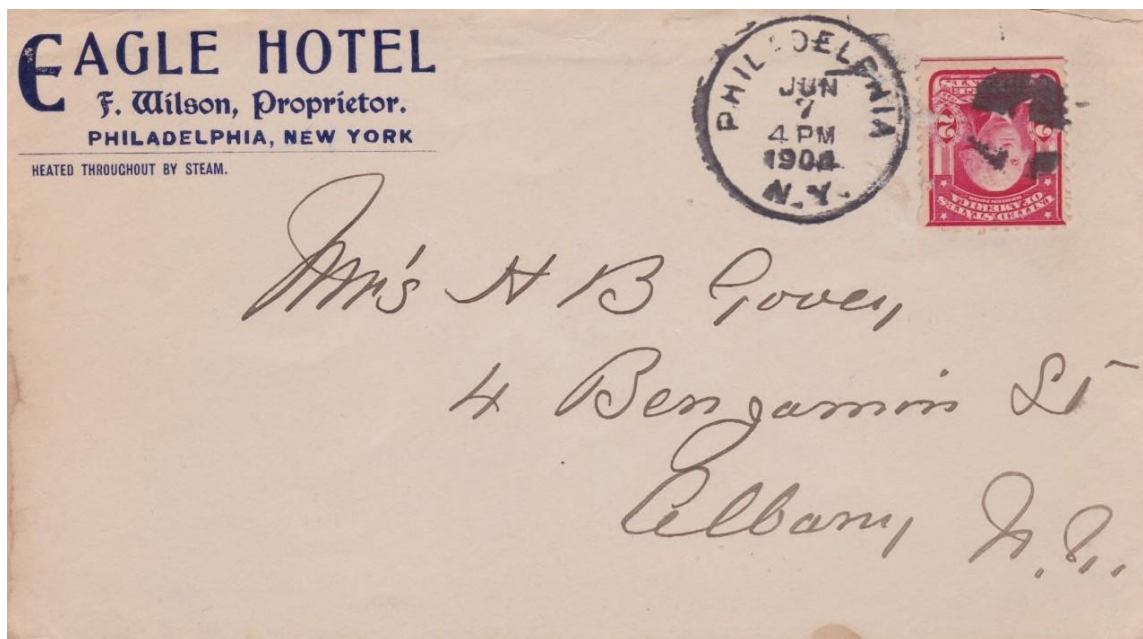 EAGLE HOTEL
F. Wilson, Proprietor.
PHILADELPHIA, NEW YORK
HEATED THROUGHOUT BY STEAM.
PHILADELPHIA
JUN
7
4 PM
1904
N.Y.
2 2
UNITED STATES
OF AMERICA
Mrs H B Govey
4 Benjamin St
Albany N.Y.